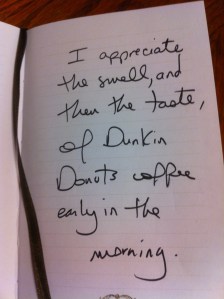 I appreciate
the smell, and
then the taste,
of Dunkin
Donuts coffee
early in the
morning.